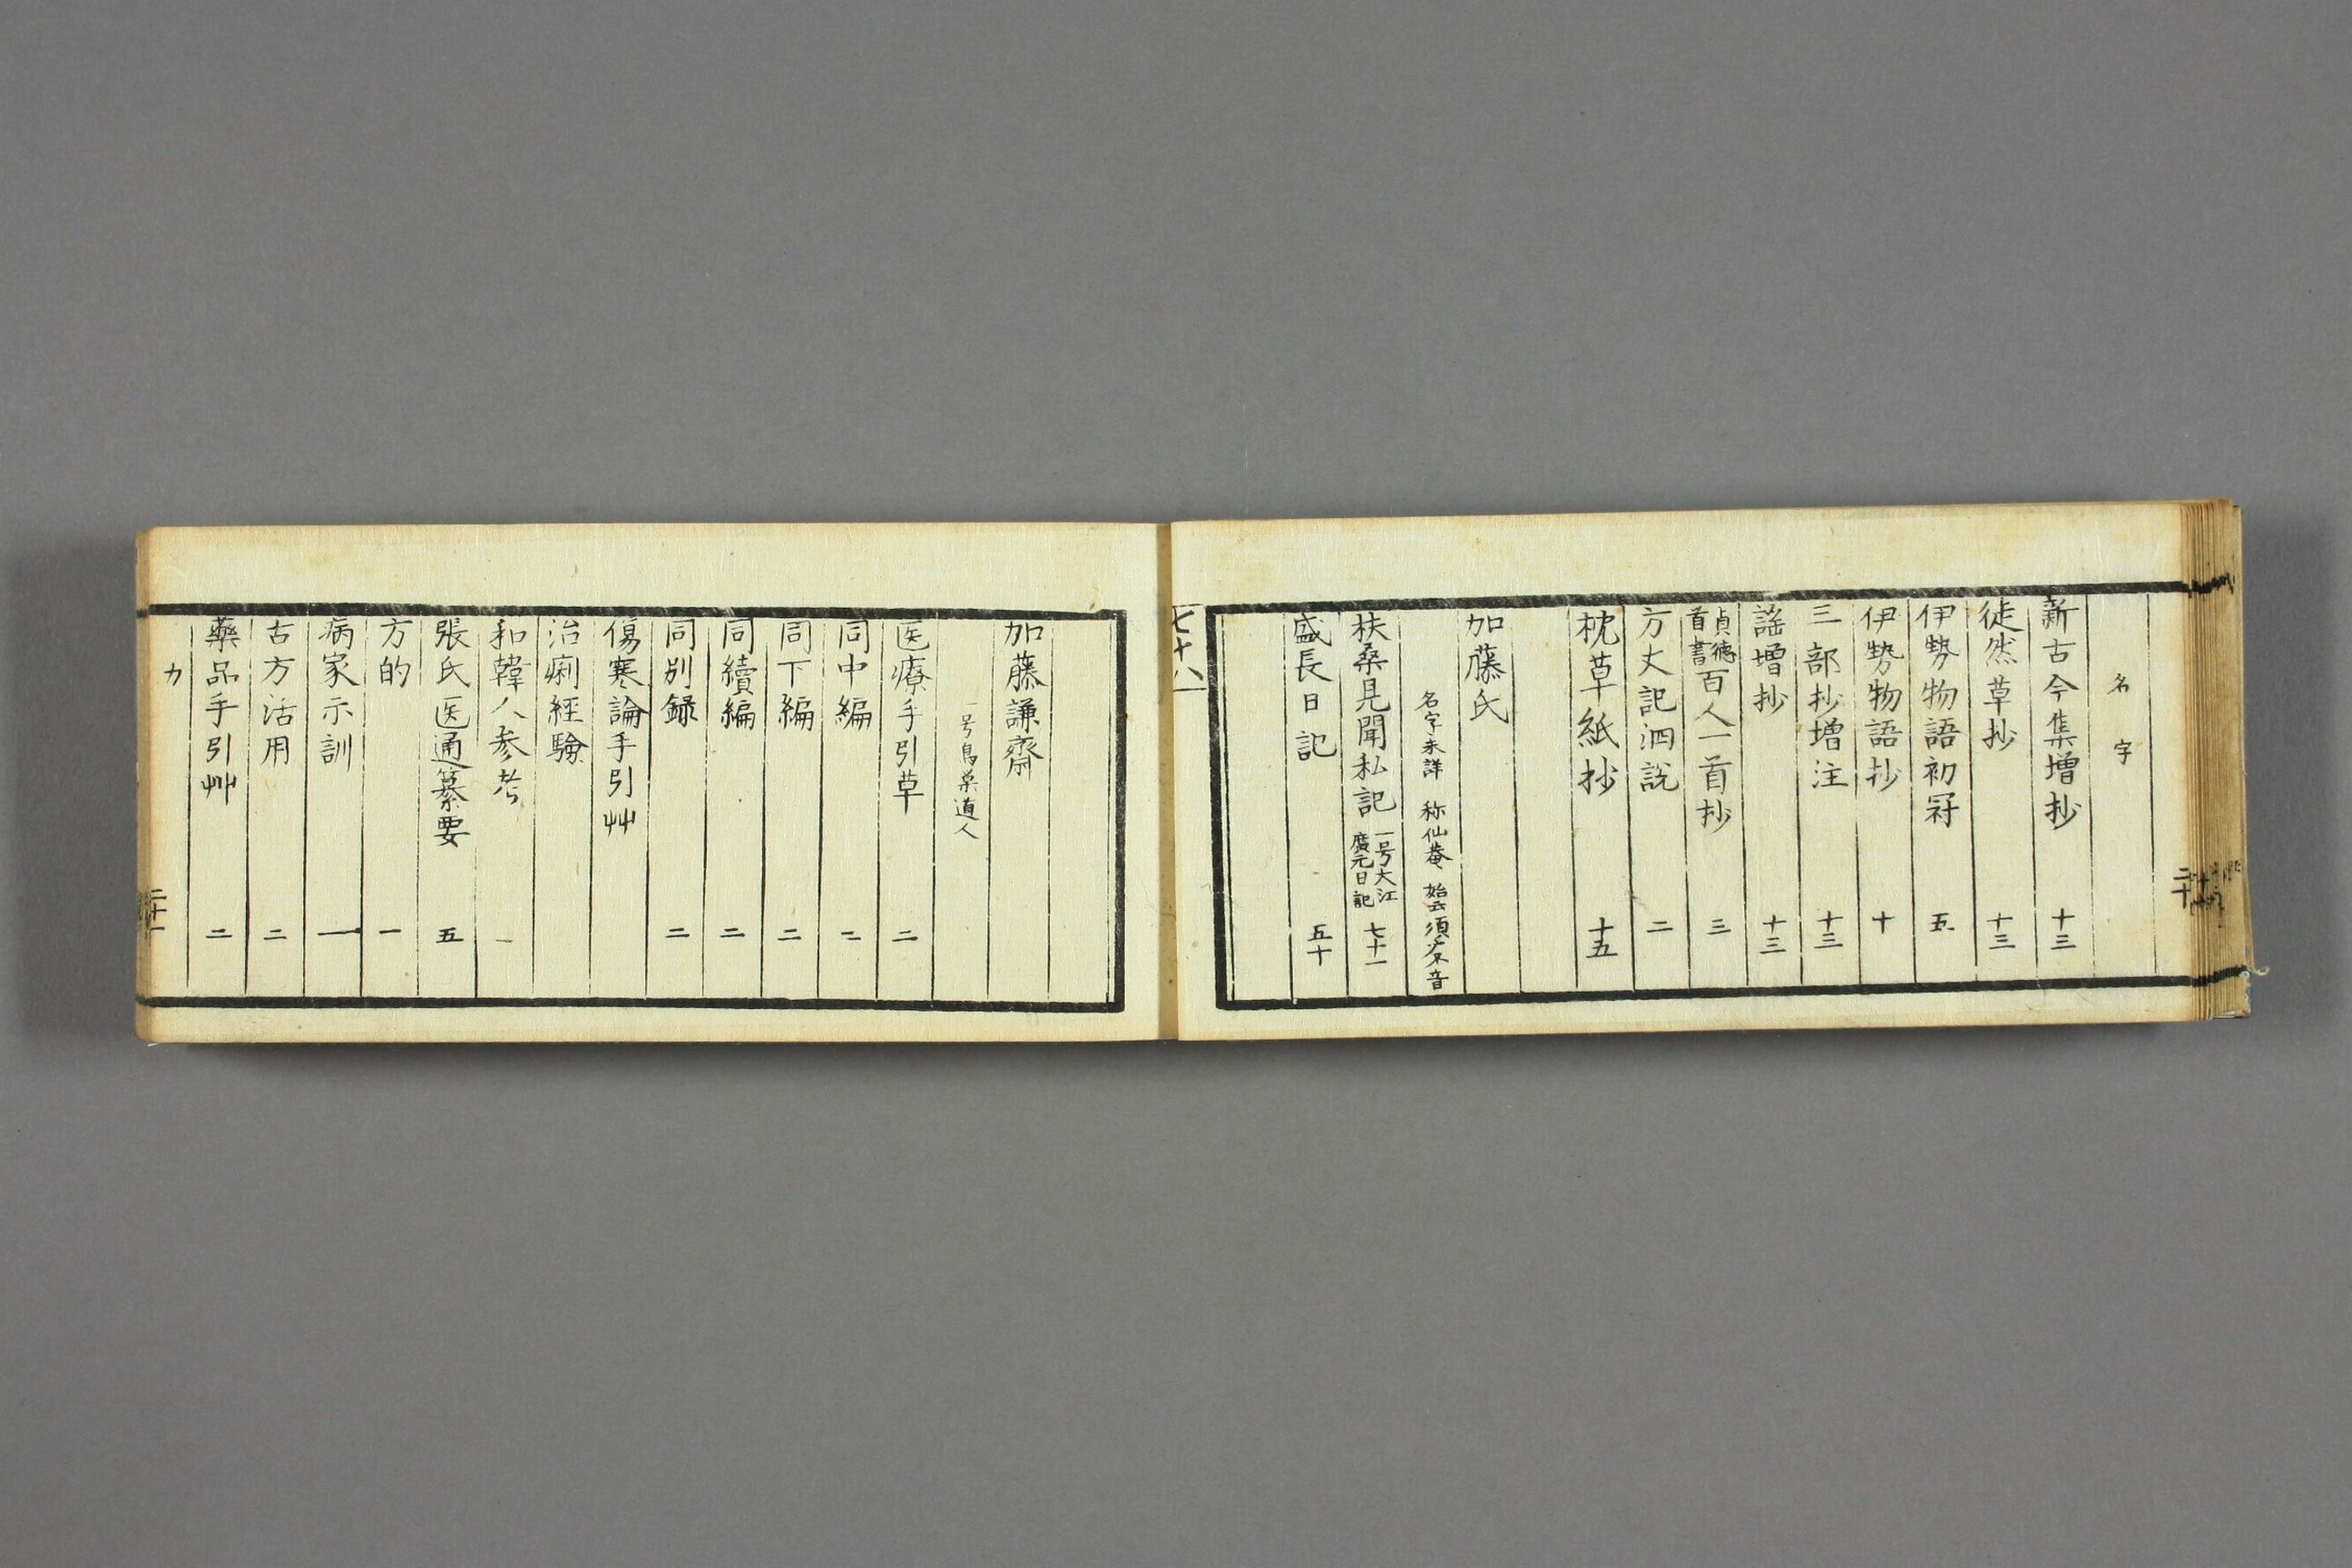 名字
新古今集増抄 十三
徒然草抄 十三
伊勢物語初冠 五
伊勢物語抄 十
三部抄増注 十三
謡増抄 十三
貞徳首書百人一首抄 三
方丈記泗説 二
枕草紙抄 十五
加藤氏
名字未詳 称仙菴
扶桑見聞私記 一号大江廣元日記 七十一
盛長日記 五十
七十八
加藤謙齋
一号烏巣道人
医療手引草 二
同中編 二
同下編 二
同續編 二
同別録 二
傷寒論手引艸
治痢経験
和韓人参考 一
張氏医通纂要 五
方的 一
病家示訓 一
古方活用 二
藥品手引艸 二
カ
二十一